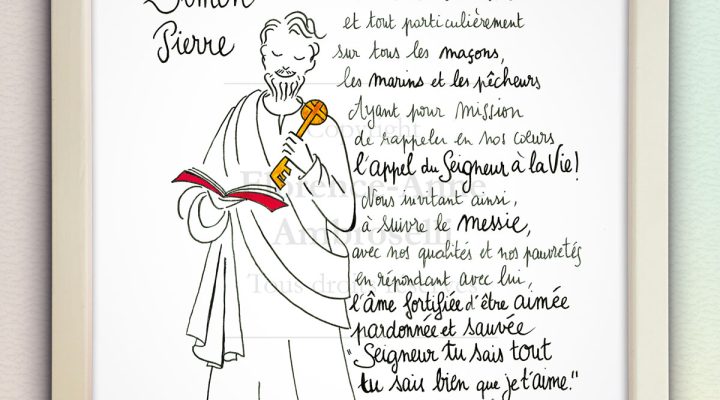 Simon
Pierre
et tout particulièrement
sur tous les maçons,
les marins et les pêcheurs
Ayant pour mission
de rappeler en nos cœurs
l'appel du Seigneur à la Vie!
Nous invitant ainsi,
à suivre le messie,
avec nos qualités et nos pauvretés
en répondant avec lui,
l'âme fortifiée d'être aimée
pardonnée et sauvée
"Seigneur tu sais tout
tu sais bien que je t'aime."
Copyright
Florence-Anne
Ambroselli
Tous droits